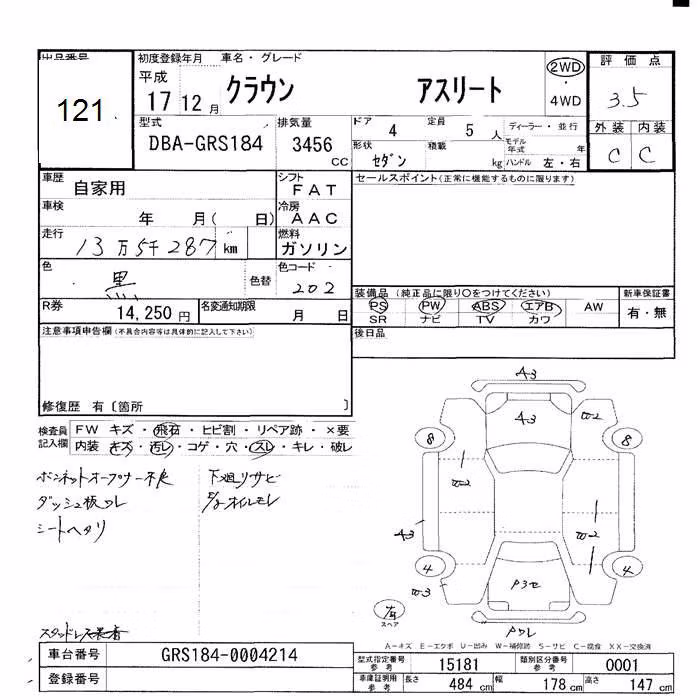 出品番号
121
初度登録年月 車名・グレード
平成
17 12 月 クラウン アスリート
2WD
4WD
評価点
3.5
外装 内装
C C
型式
DBA-GRS184
排気量
3456
CC
ドア 4 定員 5 人
ディーラー・並行
形状 セダン 積載 kg
モデル年式 年
ハンドル 左・右
車歴 自家用
シフト
FAT
車検 年 月( 日)
冷房
AAC
走行 13万5千287 km
燃料
ガソリン
色 黒 色替
色コード
202
R券 14,250円
名変通知期限 月 日
セールスポイント(正常に機能するものに限ります)
装備品 (純正品に限り○をつけてください)
PS PW ABS エアB AW
SR ナビ TV カワ
新車保証書
有・無
後日品
注意事項申告欄(不具合内容等は具体的に記入して下さい)
修復歴 有〔箇所 〕
検査員記入欄
FW キズ・飛石・ヒビ割・リペア跡・×要
内装・キズ・汚レ・コゲ・穴・スレ・キレ・破レ
ボンネットオープナー不良 下廻リサビ
ダッシュ板ワレ
オイルモレ
シートヘタリ
A3
A3
W2
8
8
W2
A3
W2
4
4
W3
P3
スペア
A-キズ E-エクボ U-凹み W-補修跡 S-サビ C-腐食 XX-交換済
車台番号 GRS184-0004214
登録番号
型式指定番号参考 15181 類別区分番号参考 0001
車庫証明用参考 長さ 484 cm 幅 178 cm 高さ 147 cm